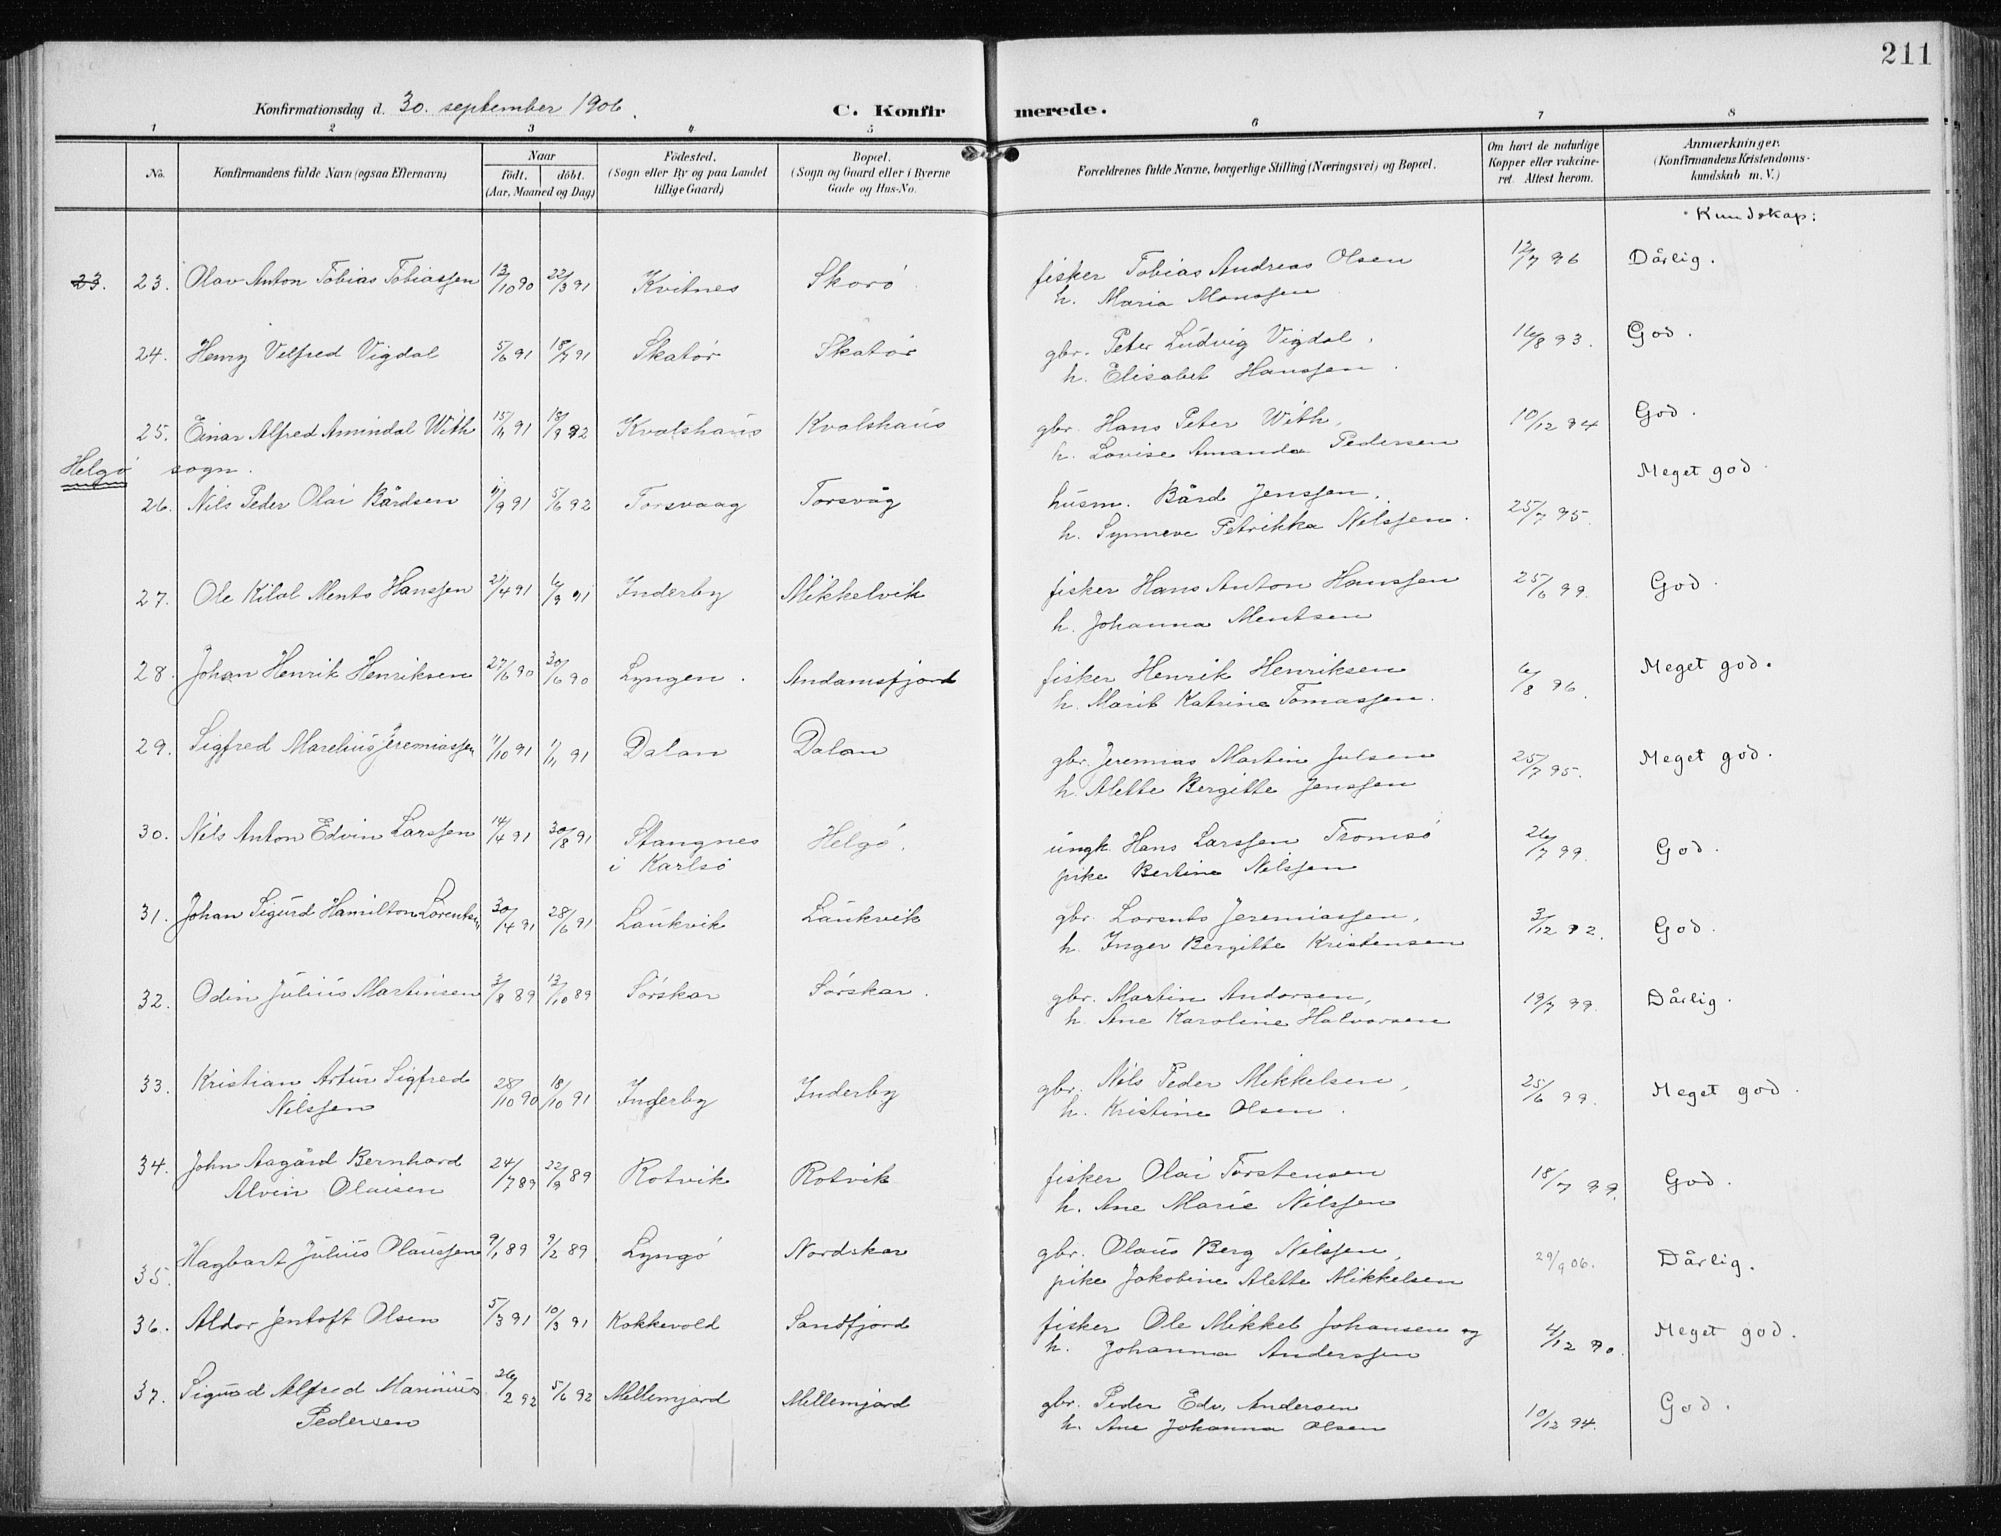 211
Konfirmationsdag d. 30. september 1906. C. Konfirmerede.
1 2 3 4 5 6 7 8
No. Konfirmandens fulde Navn (ogsaa Efternavn) Naar födt. döbt. (Aar, Maaned og Dag) Födested. (Sogn eller By og paa Landet tillige Gaard) Bopæl. (Sogn og Gaard eller i Byerne Gade og Hus-No. Forældrenes fulde Navne, borgerlige Stilling (Næringsvei) og Bopæl. Om havt de naturlige Kopper eller vakcineret. Attest herom. Anmærkninger. (Konfirmandens Kristendomskundskab m. V.)
Kundskap:
23. 23. Olav Anton Tobias Tobiassen 13/10 90 22/3 91 Kvitnes Skorö fisker Tobias Andreas Olsen 12/7 96 Dårlig.
h. Maria Monssen
24. Henry Velfred Vigdal 5/6 91 18/7 91 Skatör Skatör gbr. Peter Ludvig Vigdal, 16/8 93. God.
h. Elisabet Hanssen.
25. Einar Alfred Amindal With 15/11 91 18/9 92 Kvalshaus Kvalshaus gbr. Hans Peter With, 10/12 94 God.
h. Lovise Amanda Pedersen
Helgö sogn.
26. Nils Peder Olai Bårdsen 11/9 91 5/6 92 Torsvaag Torsvåg husm. Bård Jenssen, 25/7 95. Meget god.
h. Synneve Petrikka Nilssen.
27. Ole Kilal Ments Hanssen 21/4 91 6/9 91 Inderby Mikkelvik fisker Hans Anton Hanssen 25/6 99. God.
h. Johanna Mentsen
28. Johan Henrik Henriksen 27/6 90 30/6 90 Lyngen. Andamsfjord fisker Henrik Henriksen 6/8 96. Meget god.
h. Marit Katrine Tomassen.
29. Sigfred Marelius Jeremiassen 11/10 91 1/11 91 Dalan Dalan gbr. Jeremias Martin Julsen 25/7 95. Meget god.
h. Alette Bergitte Jenssen
30. Nils Anton Edvin Larssen 14/4 91 30/8 91 Stangnes Helgö. ungk. Hans Larssen Tromsö 26/7 99. God.
i Karlsö pike Bertine Nilssen
31. Johan Sigurd Hamilton Lorentsen 30/4 91 28/6 91 Laukvik Laukvik gbr. Lorents Jeremiassen, 3/12 92. God.
h. Inger Bergitte Kristensen
32. Odin Julius Martinsen 3/8 89 13/10 89 Sörskar Sörskar. gbr. Martin Andorsen, 19/7 99. Dårlig.
h. Ane Karoline Halvorsen
33. Kristian Artur Sigfred 28/10 90 18/10 91 Inderby Inderby gbr. Nils Peder Mikkelsen, 25/6 99. Meget god.
Nilssen h. Kristine Olsen.
34. John Aagård Bernhard 24/7 89 22/9 89 Rotvik Rotvik fisker Olai Torstensen 18/7 99. God.
Alvin Olaisen h. Ane Marie Nilssen
35. Hagbart Julius Olaussen 9/1 89 9/2 89 Lyngö Nordskar gbr. Olaus Berg Nilssen, 29/9 06. Dårlig.
pike Jakobine Alette Mikkelsen
36. Aldor Jentoft Olsen 5/3 91 10/3 91 Kokkevold Sandfjord fisker Ole Mikkel Johansen og 4/12 90. Meget god.
h. Johanna Anderssen
37. Sigurd Alfred Marinius 26/2 92 5/6 92 Mellemjord Mellemjord gbr. Peder Edv. Andersen 10/12 94. God.
Pedersen h. Ane Johanna Olsen